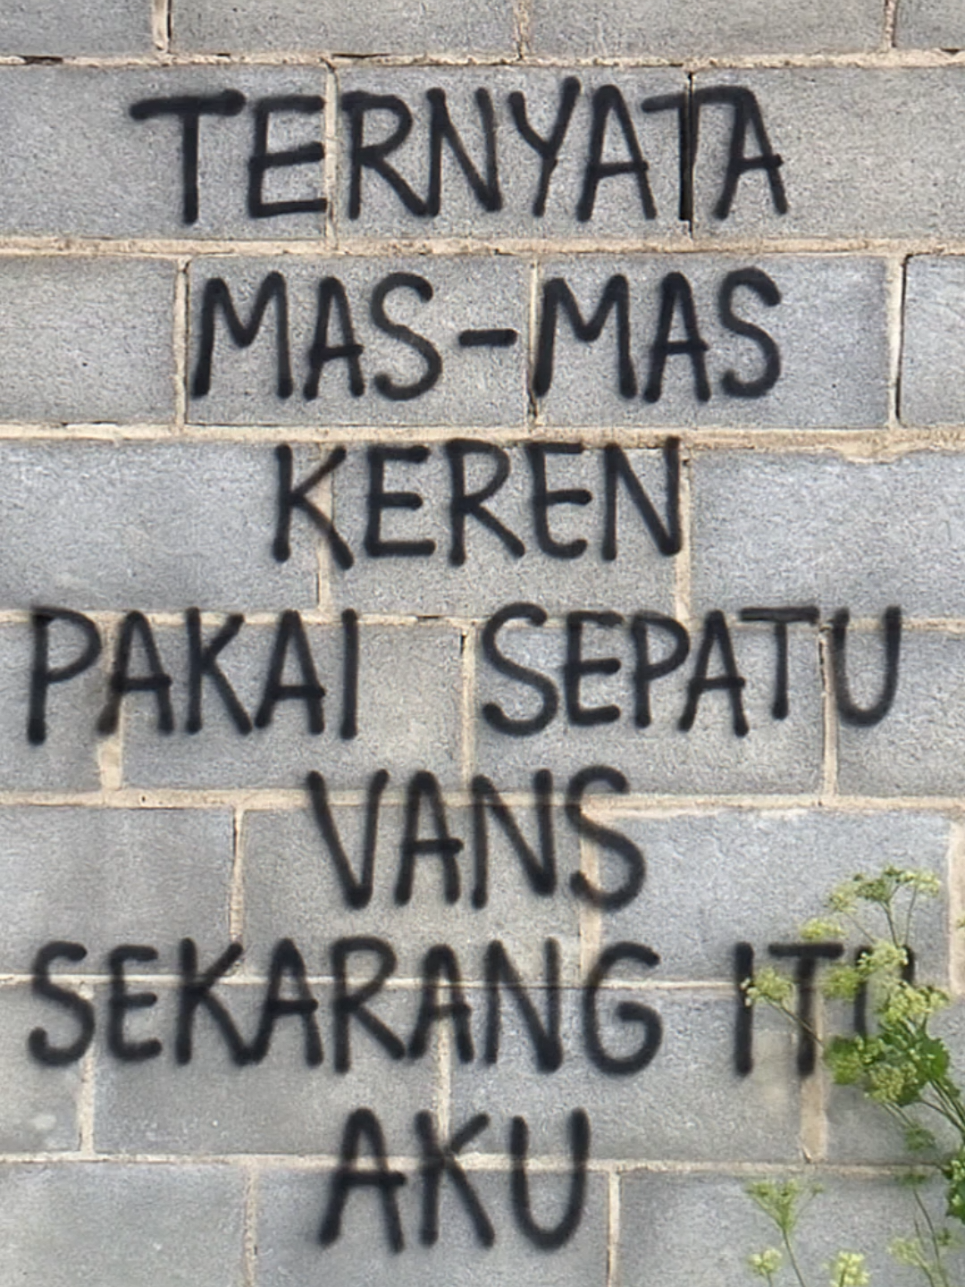 TERNYATA
MAS-MAS
KEREN
PAKAI SEPATU
VANS
SEKARANG ITU
AKU